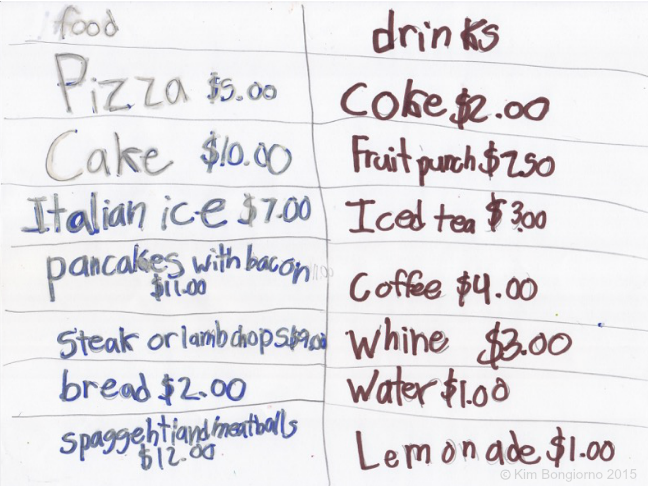 food
Pizza $5.00
Cake $10.00
Italian ice $7.00
pancakes with bacon
$11.00
Steak or lamb chops $19.00
bread $2.00
spaggehti and meatballs
$12.00
drinks
Coke $2.00
Fruit punch $2.50
Iced tea $3.00
Coffee $4.00
Whine $3.00
Water $1.00
Lemonade $1.00
© Kim Bongiorno 2015